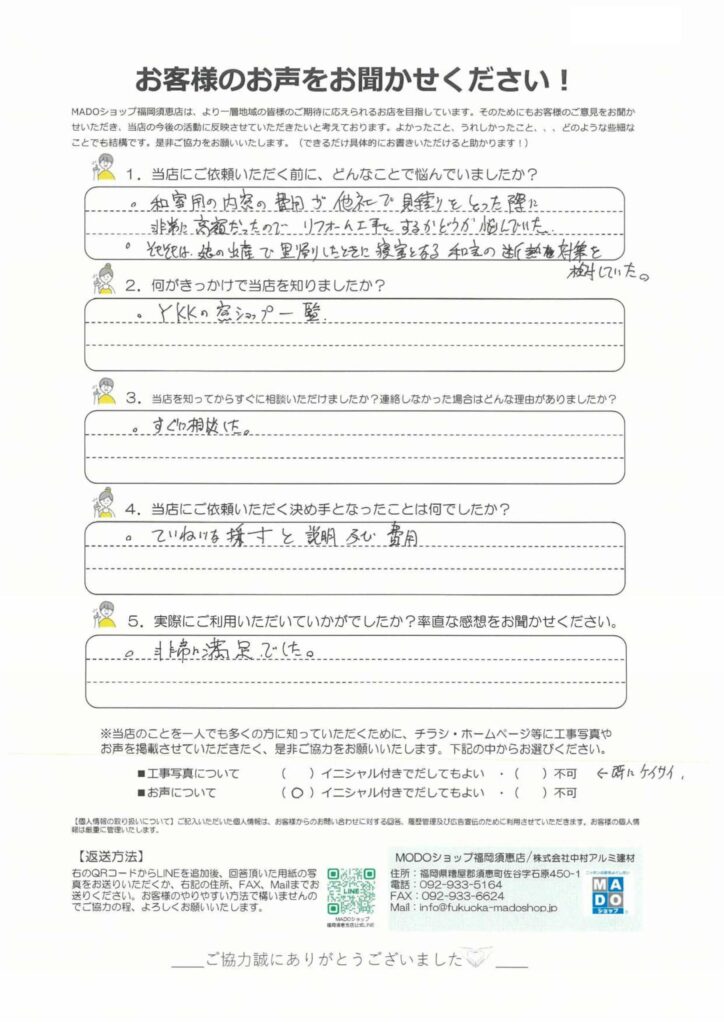 お客様のお声をお聞かせください！
MADOショップ福岡須恵店は、より一層地域の皆様のご期待に応えられるお店を目指しています。そのためにもお客様のご意見をお聞か
せいただき、当店の今後の活動に反映させていただきたいと考えております。よかったこと、うれしかったこと、、、どのような些細な
ことでも結構です。是非ご協力をお願いいたします。（できるだけ具体的にお書きいただけると助かります！）
1．当店にご依頼いただく前に、どんなことで悩んでいましたか？
。和室用の内窓の費用が他社で見積りをとった際に
非常に高額だったので リフォーム工事をするかどうか悩んでいた.
。そもそもは、娘の出産で里帰りしたときに寝室となる和室の断熱対策を
検討していた。
2．何がきっかけで当店を知りましたか？
。YKKの窓ショップ一覧.
3．当店を知ってからすぐに相談いただけましたか？連絡しなかった場合はどんな理由がありましたか？
。すぐに相談した。
4．当店にご依頼いただく決め手となったことは何でしたか？
。ていねいな採寸と説明及び費用
5．実際にご利用いただいていかがでしたか？率直な感想をお聞かせください。
。非常に満足でした。
※当店のことを一人でも多くの方に知っていただくために、チラシ・ホームページ等に工事写真や
お声を掲載させていただきたく、是非ご協力をお願いいたします。下記の中からお選びください。
■工事写真について （ ）イニシャル付きでだしてもよい ・（ ）不可 ←既にケイサイ.
■お声について （○）イニシャル付きでだしてもよい ・（ ）不可
【個人情報の取り扱いについて】ご記入いただいた個人情報は、お客様からのお問い合わせに対する回答、履歴管理及び広告宣伝のために利用させていただきます。お客様の個人情
報は厳重に管理いたします。
【返送方法】
右のQRコードからLINEを追加後、回答頂いた用紙の写
真をお送りいただくか、右記の住所、FAX、Mailまでお
送りください。お客様のやりやすい方法で構いませんの
でご協力の程、よろしくお願いいたします。
LINE
MADOショップ
福岡須恵店公式LINE
MADOショップ福岡須恵店/株式会社中村アルミ建材
住所：福岡県糟屋郡須恵町佐谷字石原450-1
電話：092-933-5164
FAX：092-933-6624
Mail：info@fukuoka-madoshop.jp
MADO
ショップ
ご協力誠にありがとうございました